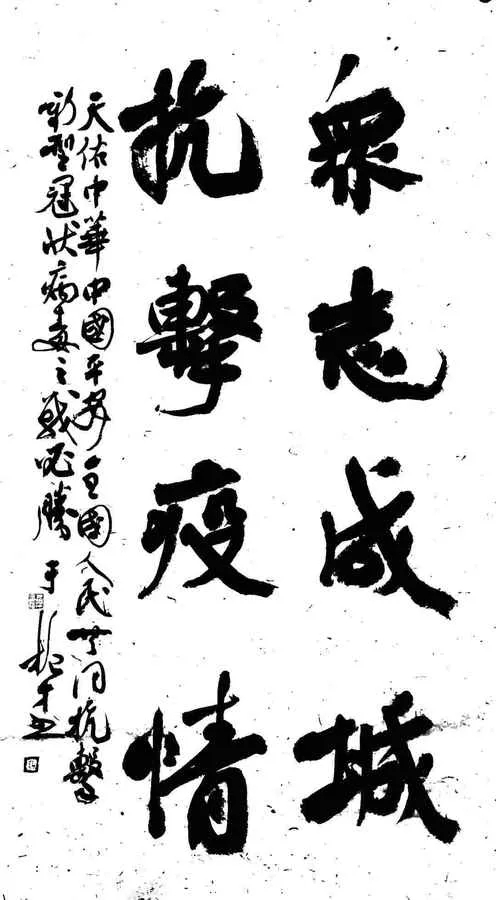 眾志成城
抗擊疫情
天佑中華中國平安全國人民共同抗擊
新型冠狀病毒之戰必勝 于